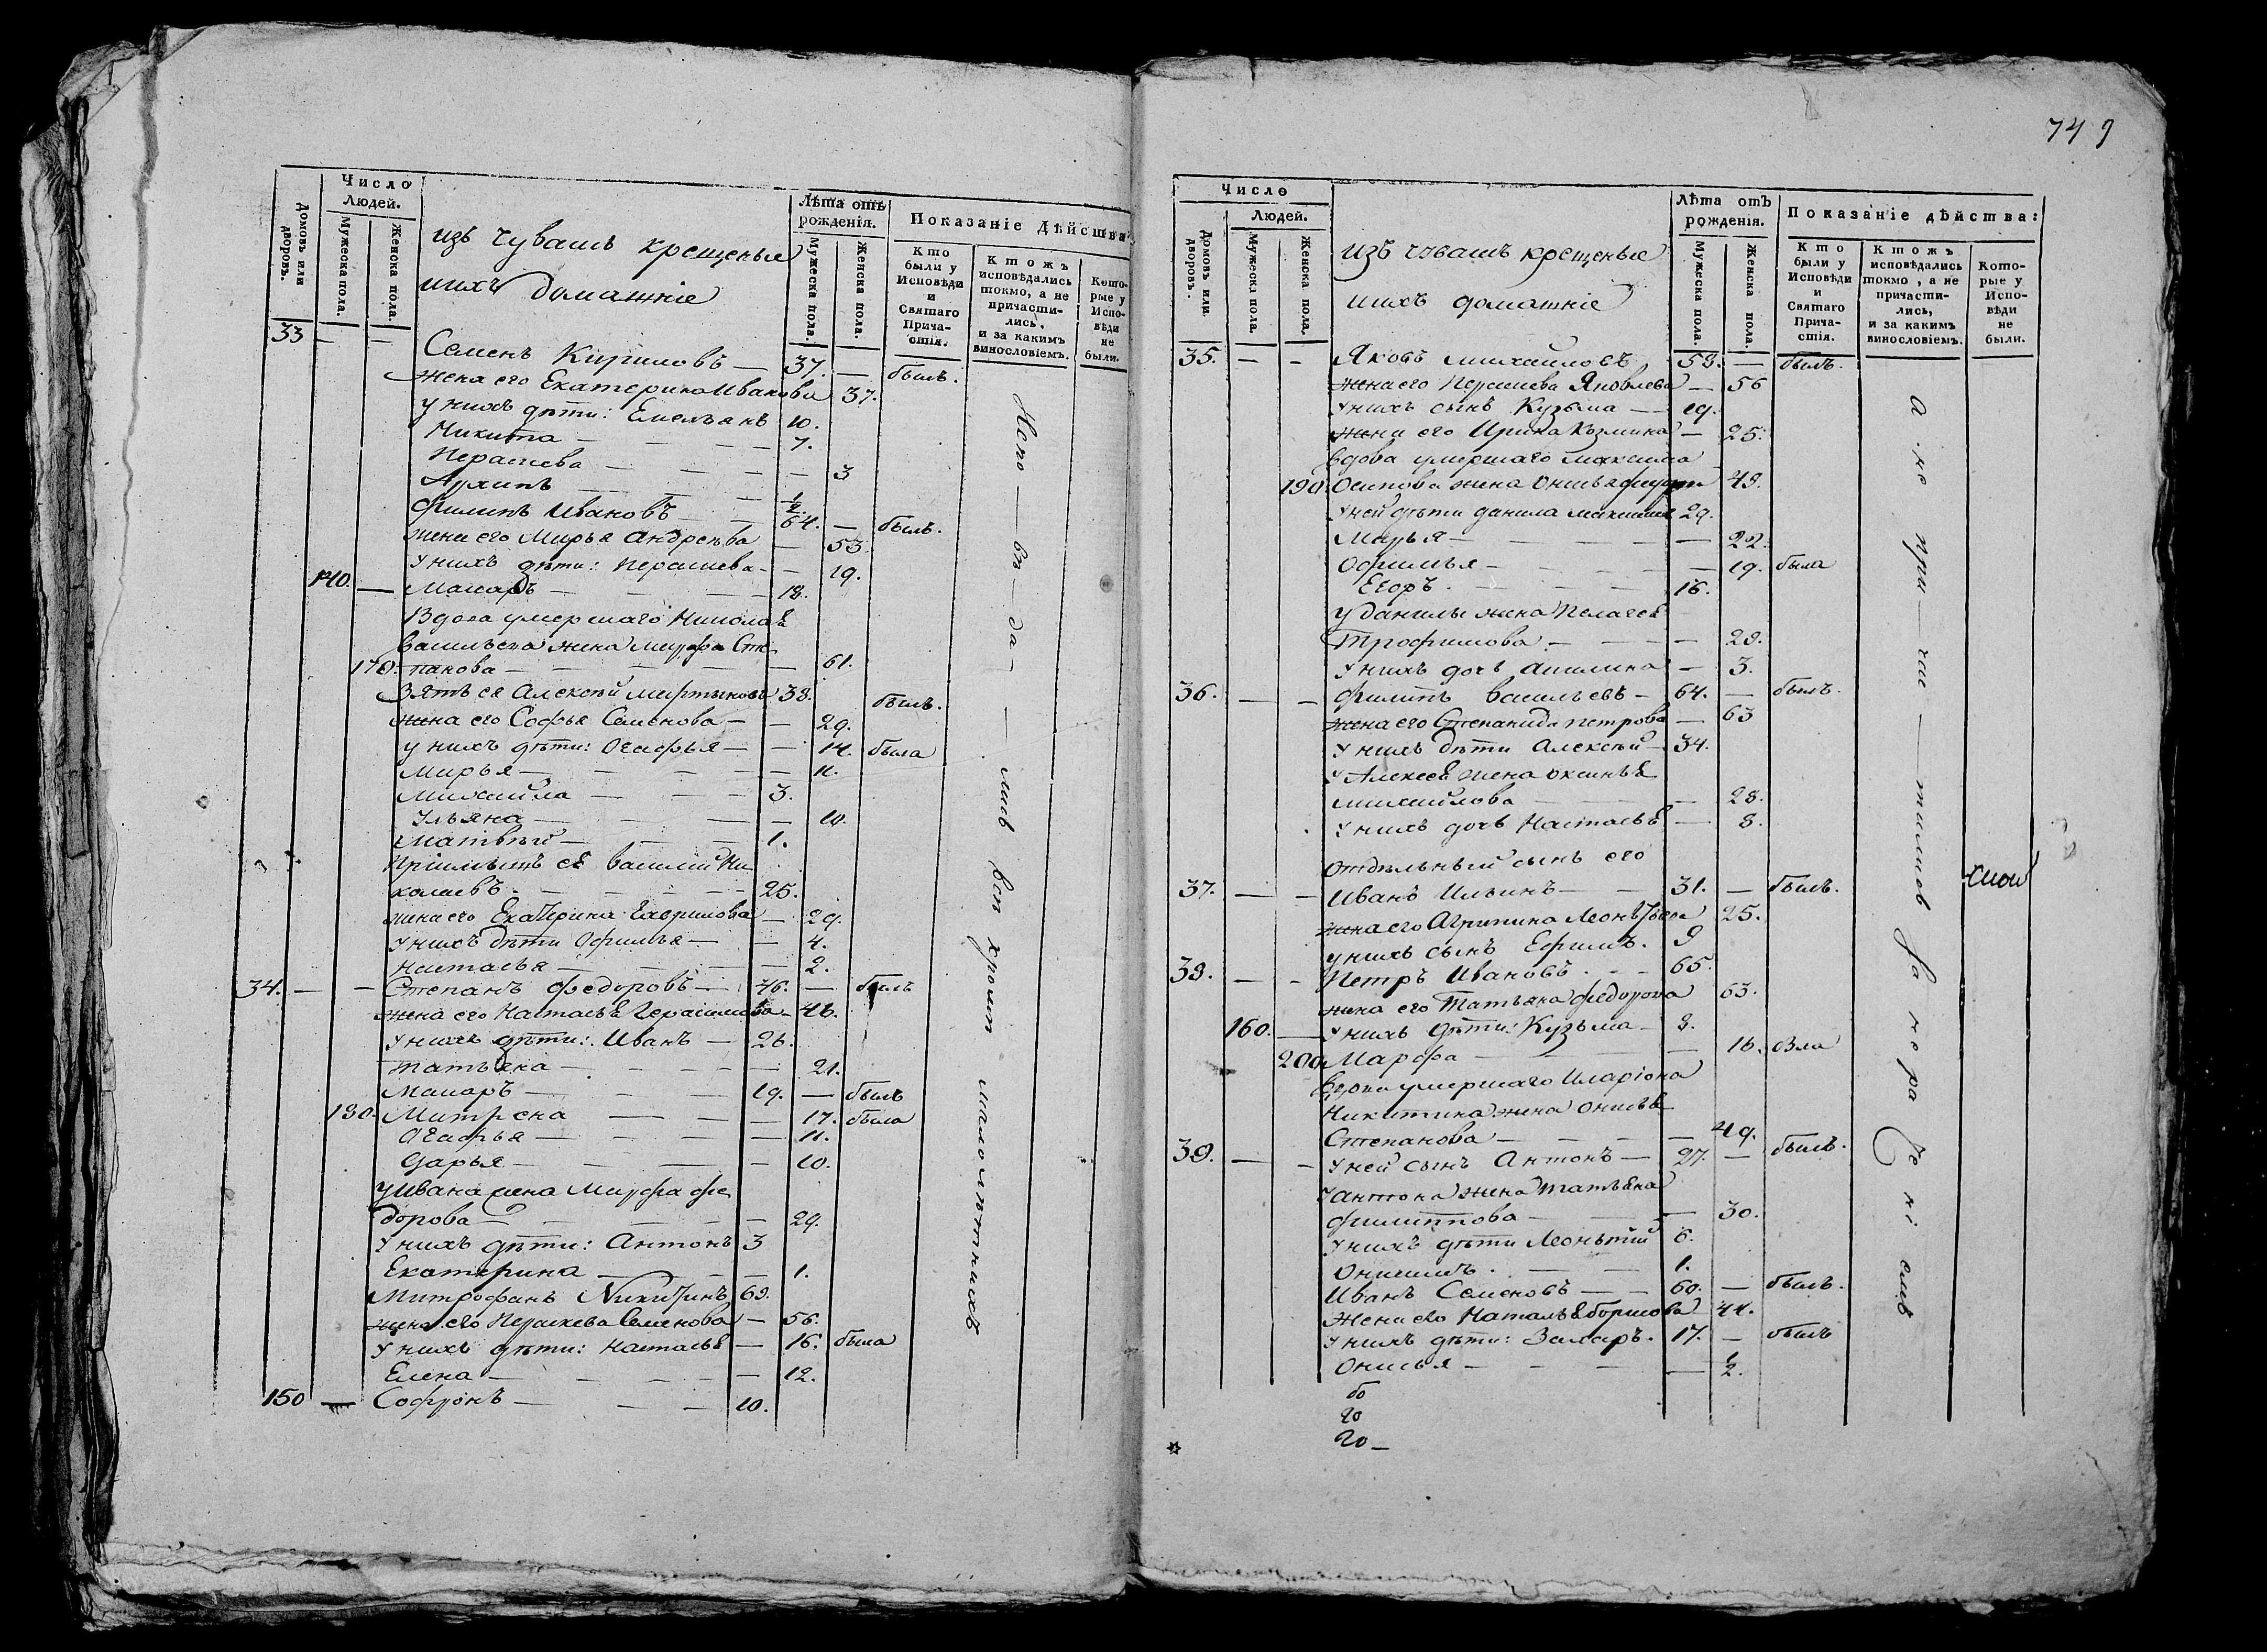 Число
Людей.
Домовъ или дворовъ.
Мужеска пола.
Женска пола.
изъ чувашъ крещеныя
ихъ домашніе
Лѣта отъ рожденія.
Мужеска пола.
Женска пола.
Показаніе дѣйства
Кто были у Исповѣди и Святаго Причастія.
Ктожъ исповѣдались токмо, а не причастились, и за какимъ винословіемъ.
Которые у Исповѣди не были.
33 — — Семенъ Кириловъ — 37. — былъ.
жена его Екатерина Иванова 37.
у нихъ дѣти: Емельянъ 10.
Никита — 7.
Параскева — 3
Архипъ — ½.
Филипъ Ивановъ — 64. — былъ.
жена его Марья Андреева — 53.
у нихъ дѣти: Параскева — 19.
140. — Макаръ — 18.
Вдова умершаго Николая
Васильева жена Марфа Сте
170. панова — 61.
Зять ея Алексѣй Мартыновъ 38. былъ.
жена его Софья Семенова — 29.
у нихъ дѣти: Огафья — 14. была
Марья — 11.
Михаила — 3.
Ульяна — 10.
Матвѣй — 1.
Пріимышъ ея Василій Ни
колаевъ — 25.
жена его Екатерина Гаврилова — 29.
у нихъ дѣти Офимья — 4.
Настасья — 2.
34. — — Степанъ Федоровъ — 46. — былъ
жена его Настасья Герасимова — 46.
у нихъ дѣти: Иванъ — 26.
Татьяна — 21.
Макаръ — 19. — былъ
180. Митрена — 17. была
Огафья — 11.
Дарья — 10.
у Ивана жена Марфа Фе
дорова — 29.
у нихъ дѣти: Антонъ 3
Екатерина — 1.
Митрофанъ Никитинъ 69.
жена его Параскева Семенова — 56.
у нихъ дѣти: Настасья — 16. была
Елена — 12.
150 — Софронъ — 10.
Испо — вѣ — да — лись всѣ кромѣ малолѣтнихъ
749
Число
Людей.
Домовъ или дворовъ.
Мужеска пола.
Женска пола.
изъ чувашъ крещеныя
ихъ домашніе
Лѣта отъ рожденія.
Мужеска пола.
Женска пола.
Показаніе дѣйства:
Кто были у Исповѣди и Святаго Причастія.
Ктожъ исповѣдались токмо, а не причастились, и за какимъ винословіемъ.
Которые у Исповѣди не были.
35. — — Яковъ Михайловъ 58. — былъ.
жена его Параскева Яковлева — 56
у нихъ сынъ Кузьма — 19.
жена его Ирина Козмина — 25.
Вдова умершаго Максима
190. Осипова жена Онисья 48.
у ней дѣти Данила 29.
Марья — 22.
Офимья — 19. была
Егоръ — 16.
у Данилы жена Пелагея
Трофимова — 28.
у нихъ дочь Акилина — 3.
36. — — Филипъ Васильевъ — 64. — былъ.
жена его Степанида Петрова — 63
у нихъ дѣти Алексѣй — 34.
у Алексея жена Оксинья
Михайлова — 28.
у нихъ дочь Настасья — 8.
Отдѣльный сынъ его
37. — — Иванъ Ильинъ — 31. — былъ.
жена его Агрипина Леонтьева 25.
у нихъ сынъ Ефимъ. 9
38. — — Петръ Ивановъ — 65.
жена его Татьяна Федорова 63.
160. — у нихъ дѣти: Кузьма — 8.
200. Марфа — 16.
Вдова умершаго Иларіона
Никитина жена Онисья
Степанова — 49.
39. — — у ней сынъ Антонъ — 27. — былъ.
у Антона жена Татьяна
Филиппова — 30.
у нихъ дѣти Леонтій 6.
Онисимъ — 1.
Иванъ Семеновъ — 60. — былъ.
жена его Наталья 44.
у нихъ дѣти: Захаръ. 17. — былъ
Онисья — ½.
20
20 —
а не при — час — тились за нераченіемъ